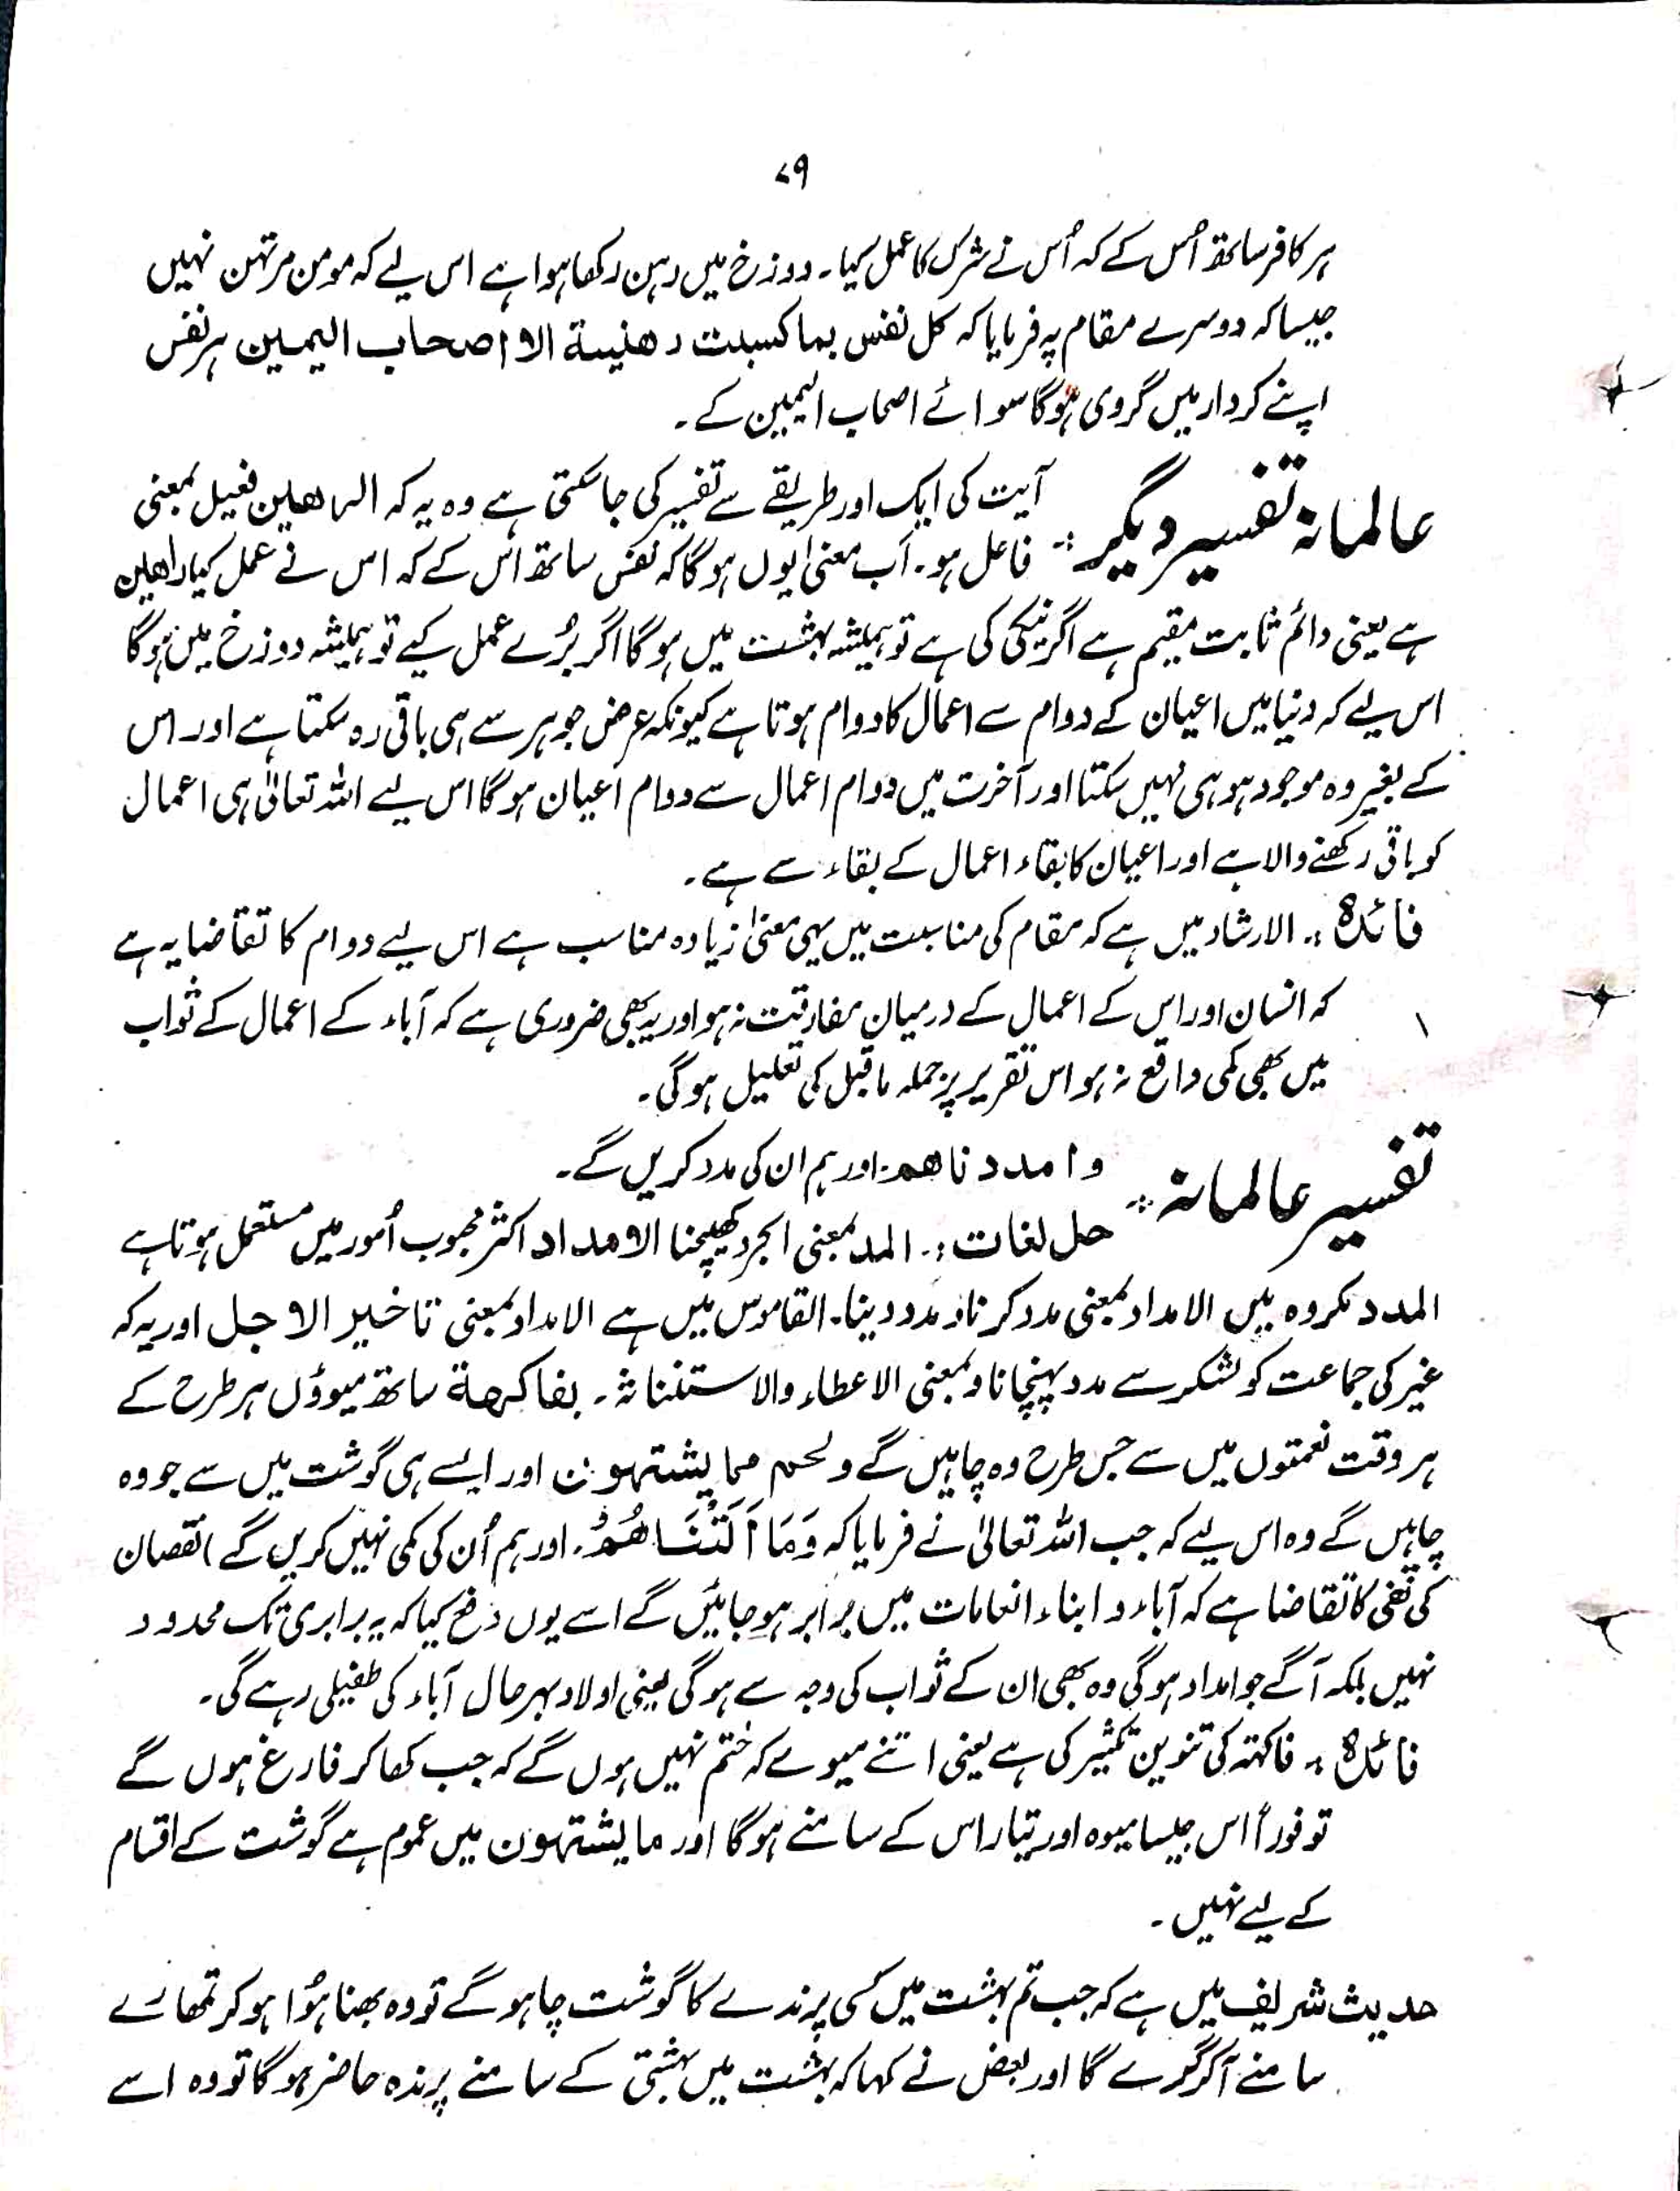 ۷۹
ہر کافر ساتھ اُس کے کہ اُس نے شرک کا عمل کیا۔ دوزخ میں رہن رکھا ہوا ہے اس لیے کہ مومن مرتہن نہیں
جیسا کہ دوسرے مقام پہ فرمایا کہ کل نفس بما کسبت رھنیۃ الا اصحاب الیمین ہر نفس
اپنے کردار میں گروی ہوگا سوائے اصحاب الیمین کے۔
عالمانہ تفسیر دیگر :۔ آیت کی ایک اور طریقے سے تفسیر کی جا سکتی ہے وہ یہ کہ الراھلین فعیل بمعنی
فاعل ہو۔ اب معنیٰ یوں ہوگا کہ نفس ساتھ اس کے کہ اس نے عمل کیا راھلین
ہے یعنی دائم ثابت مقیم ہے اگر نیکی کی ہے تو ہمیشہ بہشت میں ہوگا اگر بُرے عمل کیے تو ہمیشہ دوزخ میں ہوگا
اس لیے کہ دنیا میں اعیان کے دوام سے اعمال کا دوام ہوتا ہے کیونکہ عرض جوہر سے ہی باقی رہ سکتا ہے اور اس
کے بغیر وہ موجود ہو ہی نہیں سکتا اور آخرت میں دوام اعمال سے دوام اعیان ہوگا اس لیے اللہ تعالیٰ ہی اعمال
کو باقی رکھنے والا ہے اور اعیان کا بقاء اعمال کے بقاء سے ہے۔
فائدہ :۔ الارشاد میں ہے کہ مقام کی مناسبت میں یہی معنیٰ زیادہ مناسب ہے اس لیے دوام کا تقاضا یہ ہے
کہ انسان اور اس کے اعمال کے درمیان مفارقت نہ ہو اور یہ بھی ضروری ہے کہ آباء کے اعمال کے ثواب
میں بھی کمی واقع نہ ہو اس تقریر پر جملہ ماقبل کی تعلیل ہوگی۔
تفسیر عالمانہ :۔ وامددناھم۔ اور ہم ان کی مدد کریں گے۔
حل لغات :۔ المد بمعنی الجر کھینچنا الامداد اکثر محبوب اُمور میں مستعمل ہوتا ہے
المدد مکروہ میں الامداد بمعنی مدد کرنا و مدد دینا۔ القاموس میں ہے الامداد بمعنی تاخیر الاجل اور یہ کہ
غیر کی جماعت کو لشکر سے مدد پہنچانا و بمعنی الاعطاء والاستغناثہ۔ بفاکھۃ ساتھ میوؤں ہر طرح کے
ہر وقت نعمتوں میں سے جس طرح وہ چاہیں گے ولحم مما یشتھون اور ایسے ہی گوشت میں سے جو وہ
چاہیں گے وہ اس لیے کہ جب اللہ تعالیٰ نے فرمایا کہ وَمَا اَلَتْنَاھُمْ۔ اور ہم اُن کی کمی نہیں کریں گے (نقصان
کی نفی کا تقاضا ہے کہ آباء و ابناء انعامات میں برابر ہو جائیں گے اسے یوں دفع کیا کہ یہ برابری تک محدود
نہیں بلکہ آگے جو امداد ہوگی وہ بھی ان کے ثواب کی وجہ سے ہوگی یعنی اولاد بہر حال آباء کی طفیلی رہے گی۔
فائدہ :۔ فاکہتہ کی تنوین تکثیر کی ہے یعنی اتنے میوے کہ ختم نہیں ہوں گے کہ جب کھا کر فارغ ہوں گے
تو فوراً اس جیسا میوہ اور تیار اس کے سامنے ہوگا اور ما یشتھون میں عموم ہے گوشت کے اقسام
کے لیے نہیں۔
حدیث شریف میں ہے کہ جب تم بہشت میں کسی پرندے کا گوشت چاہو گے تو وہ بھنا ہُوا ہو کر تمھارے
سامنے آکر گرے گا اور بعض نے کہا کہ بہشت میں بہشتی کے سامنے پرندہ حاضر ہوگا تو وہ اسے